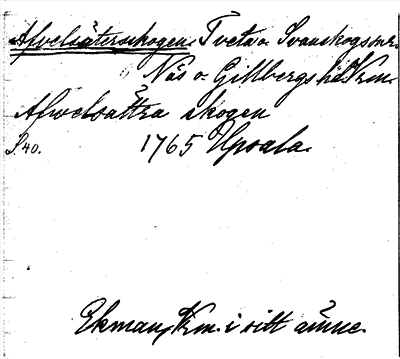 Afvelsätersskogen. Tveta o. Svanskogs snr.
Näs o. Gillbergs hd Vrm.
Afwelsättra skogen
S 40. 1765 Upsala.
Ekman, Vrm. i sitt ämne.